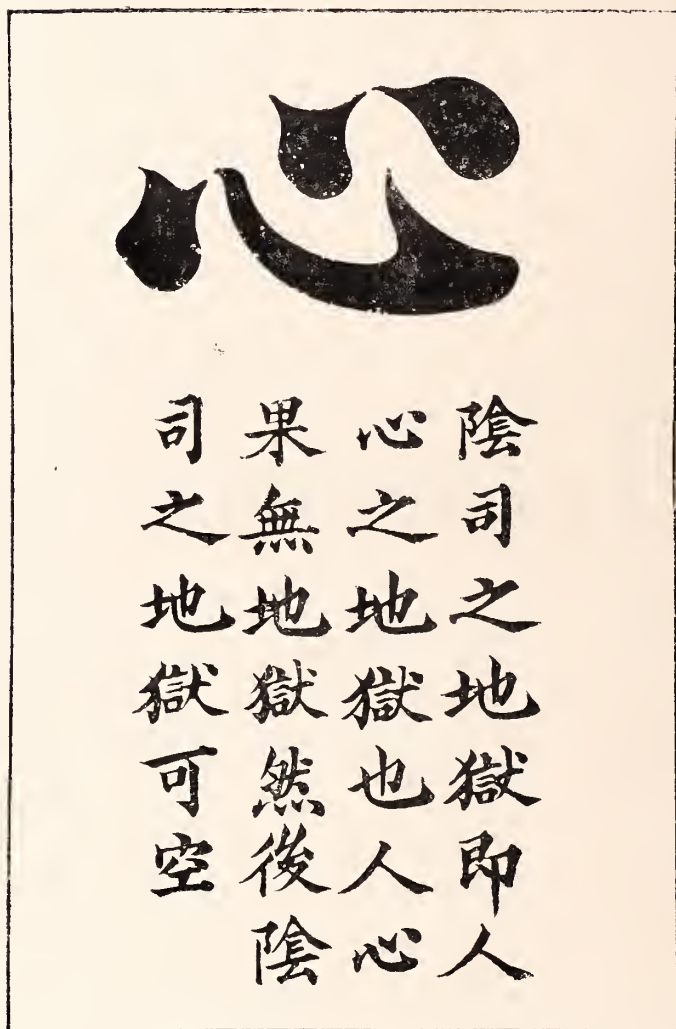 心
陰司之地獄即人
心之地獄也人心
果無地獄然後陰
司之地獄可空